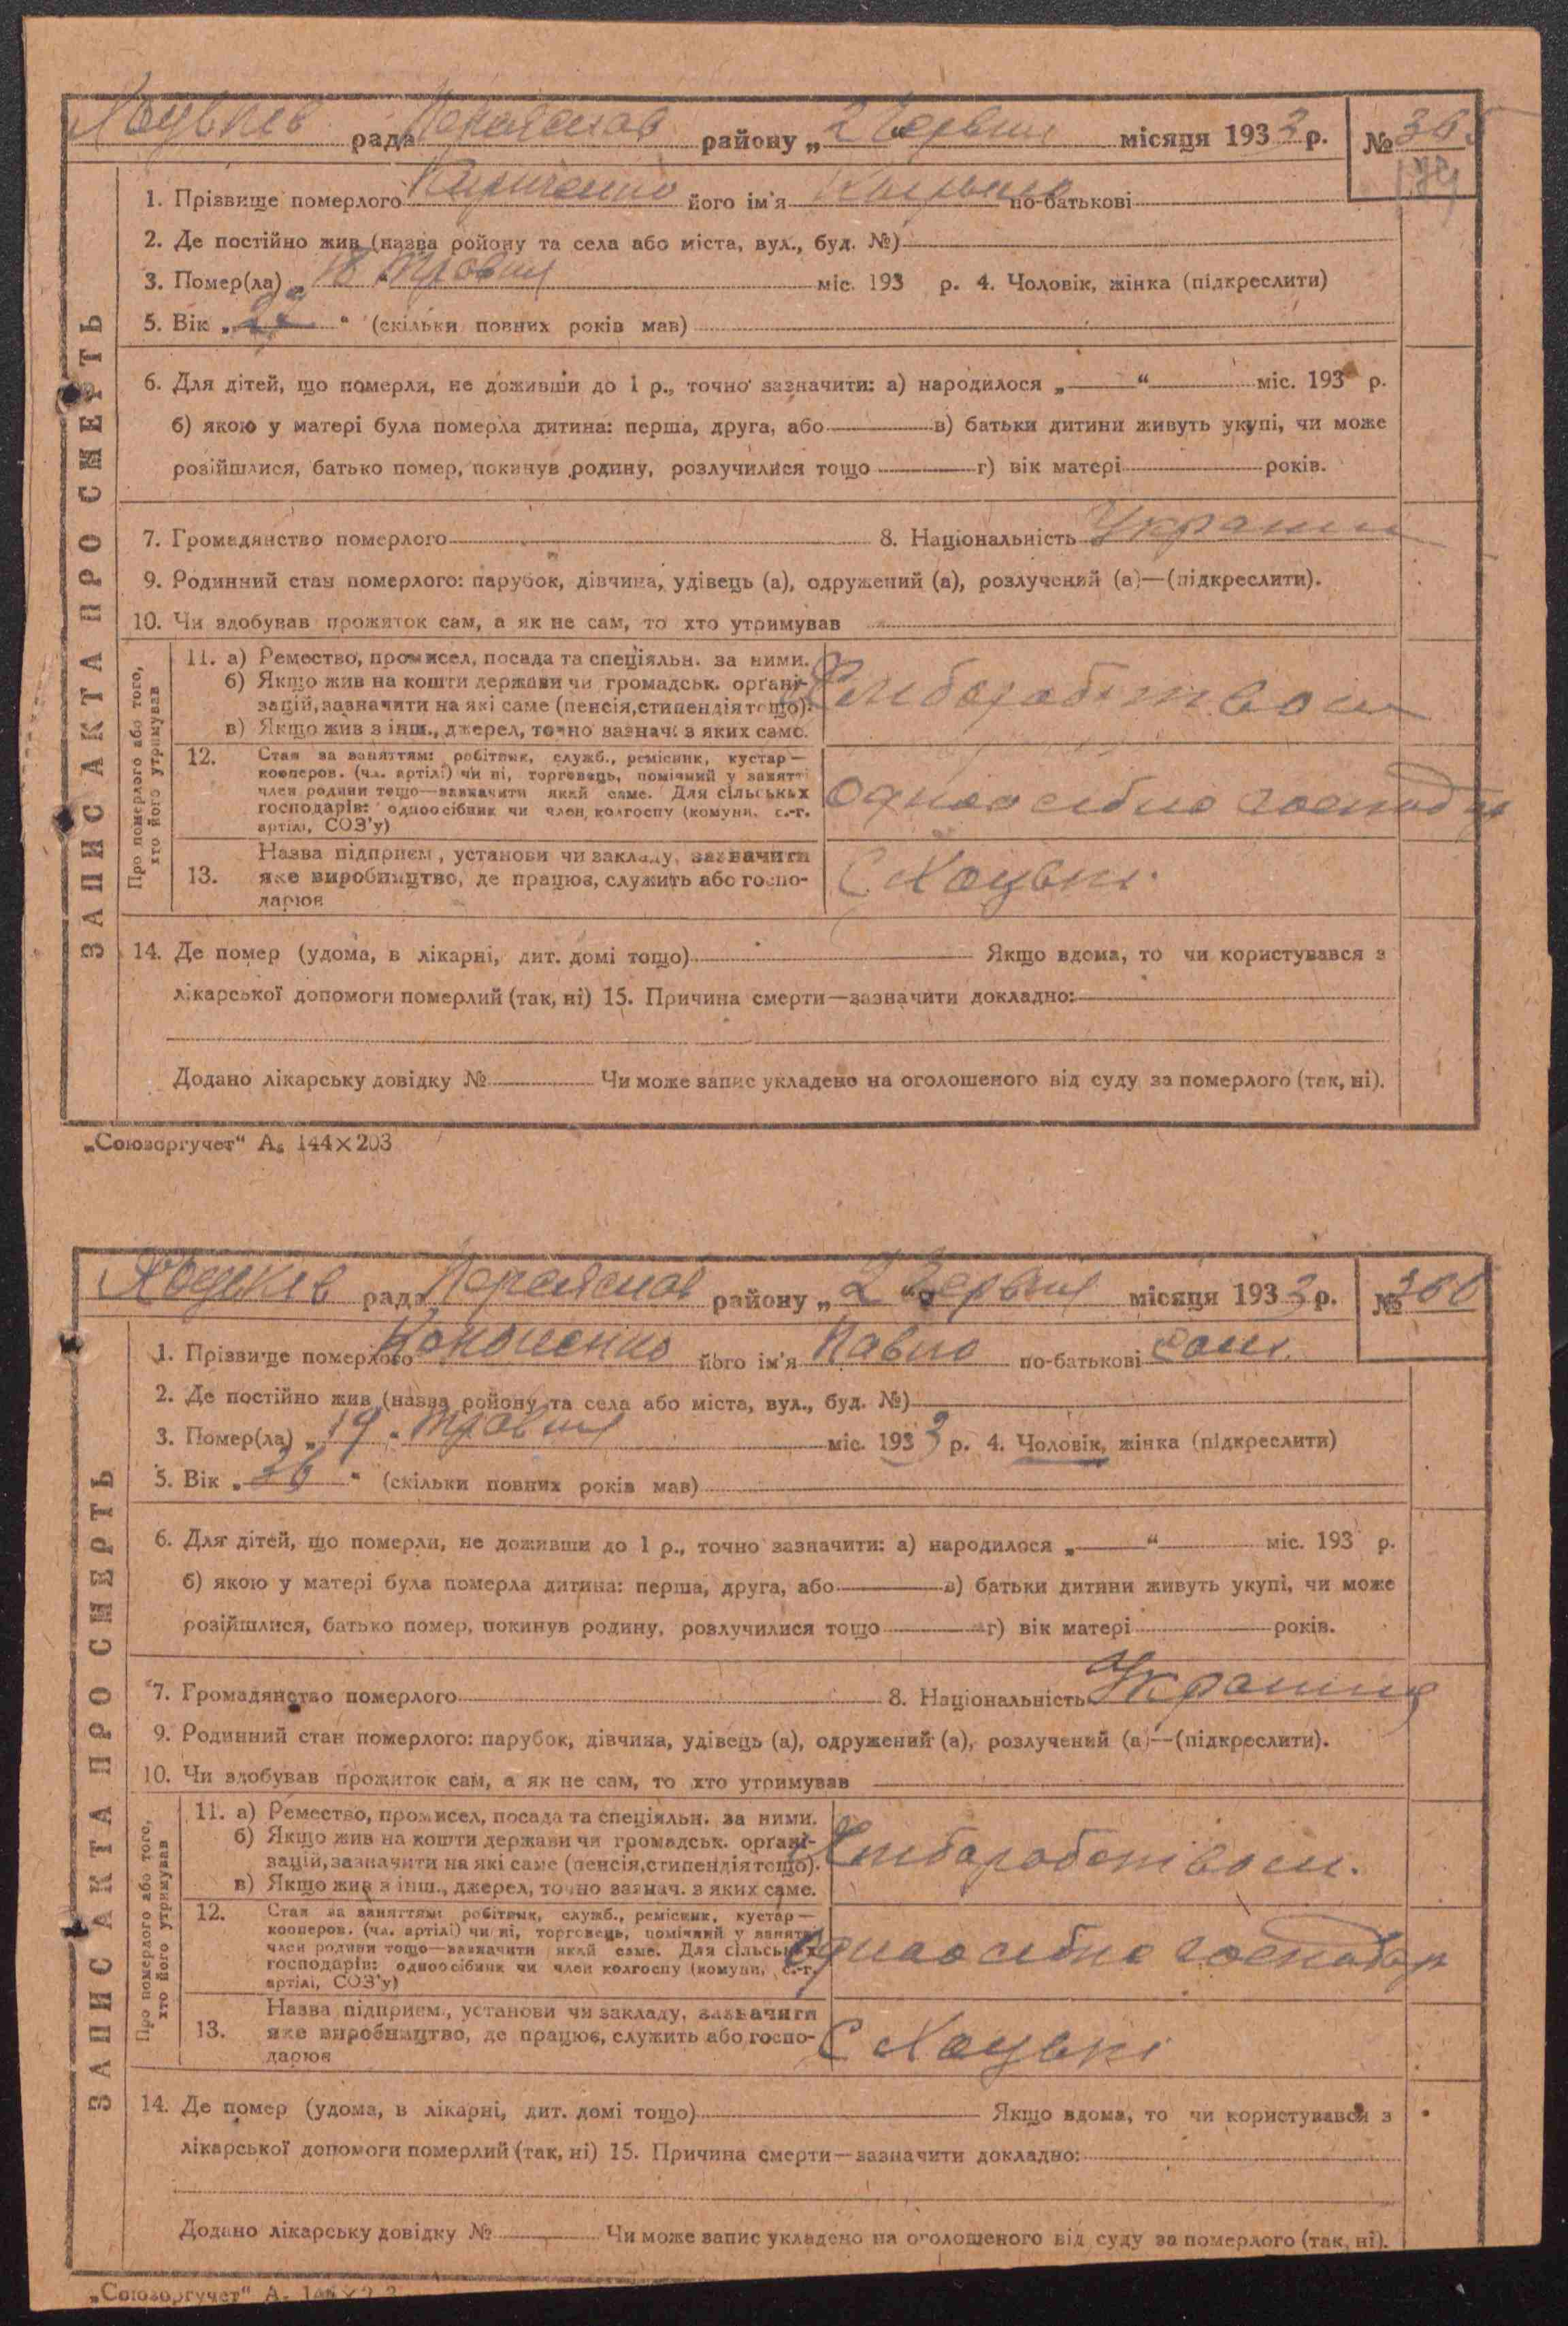 Хоцьків рада Переяслав район у „2“ Червня місяця 1933 р. № 365
179
1. Прізвище померлого Кириченко його ім'я по-батькові
2. Де постійно жив (назва ройону та села або міста, вул., буд. №)
3. Помер(ла) „18 травня міс. 193 р. 4. Чоловік, жінка (підкреслити)
5. Вік „ “ (скільки повних років мав)
6. Для дітей, що померли, не доживши до 1 р., точно зазначити: а) народилося „ “ міс. 193 р.
б) якою у матері була померла дитина: перша, друга, або в) батьки дитини живуть укупі, чи може
розійшлися, батько помер, покинув родину, розлучилися тощо г) вік матері років.
7. Громадянство померлого 8. Національність Украинц
9. Родинний стан померлого: парубок, дівчина, удівець (а), одружений (а), розлучений (а)—(підкреслити).
10. Чи здобував прожиток сам, а як не сам, то хто утримував
ЗАПИС АКТА ПРО СМЕРТЬ
Про померлого або того, хто його утримував
11. а) Ремество, промисел, посада та спеціяльн. за ними.
б) Якщо жив на кошти держави чи громадськ. орґані-
зацій, зазначити на які саме (пенсія, стипендія тощо).
в) Якщо жив з інш., джерел, точно зазнач. з яких саме.
Хлібоработвом
12. Стан за заняттям: робітник, служб., ремісник, кустар—
кооперов. (чл. артілі) чи ні, торговець, помічний у занятті
член родини тощо—зазначити який саме. Для сільських
господарів: одноосібник чи член колгоспу (комуни, с.-г.
артілі, СОЗ'у)
Одноосібно господар
13. Назва підприєм., установи чи закладу, зазначити
яке виробництво, де працює, служить або госпо-
дарює
С Хоцьки
14. Де помер (удома, в лікарні, дит. домі тощо) Якщо вдома, то чи користувався з
лікарської допомоги померлий (так, ні) 15. Причина смерти—зазначити докладно:
Додано лікарську довідку № Чи може запис укладено на оголошеного від суду за померлого (так, ні).
„Союзоргучет“ А₆ 144×203
Хоцьків рада Переяслав район у „2“ Червня місяця 1933 р. № 366
1. Прізвище померлого Кононенко його ім'я Павло по-батькові
2. Де постійно жив (назва ройону та села або міста, вул., буд. №)
3. Помер(ла) „19. травня міс. 1933 р. 4. Чоловік, жінка (підкреслити)
5. Вік „36“ (скільки повних років мав)
6. Для дітей, що померли, не доживши до 1 р., точно зазначити: а) народилося „ “ міс. 193 р.
б) якою у матері була померла дитина: перша, друга, або в) батьки дитини живуть укупі, чи може
розійшлися, батько помер, покинув родину, розлучилися тощо г) вік матері років.
7. Громадянство померлого 8. Національність Украинц
9. Родинний стан померлого: парубок, дівчина, удівець (а), одружений (а), розлучений (а)—(підкреслити).
10. Чи здобував прожиток сам, а як не сам, то хто утримував
ЗАПИС АКТА ПРО СМЕРТЬ
Про померлого або того, хто його утримував
11. а) Ремество, промисел, посада та спеціяльн. за ними.
б) Якщо жив на кошти держави чи громадськ. орґані-
зацій, зазначити на які саме (пенсія, стипендія тощо).
в) Якщо жив з інш., джерел, точно зазнач. з яких саме.
Хлібоработвом.
12. Стан за заняттям: робітник, служб., ремісник, кустар—
кооперов. (чл. артілі) чи ні, торговець, помічний у занятті
член родини тощо—зазначити який саме. Для сільських
господарів: одноосібник чи член колгоспу (комуни, с.-г.
артілі, СОЗ'у)
Одноосібно господар
13. Назва підприєм., установи чи закладу, зазначити
яке виробництво, де працює, служить або госпо-
дарює
С Хоцькі
14. Де помер (удома, в лікарні, дит. домі тощо) Якщо вдома, то чи користувався з
лікарської допомоги померлий (так, ні) 15. Причина смерти—зазначити докладно:
Додано лікарську довідку № Чи може запис укладено на оголошеного від суду за померлого (так, ні).
„Союзоргучет“ А₆ 144×203